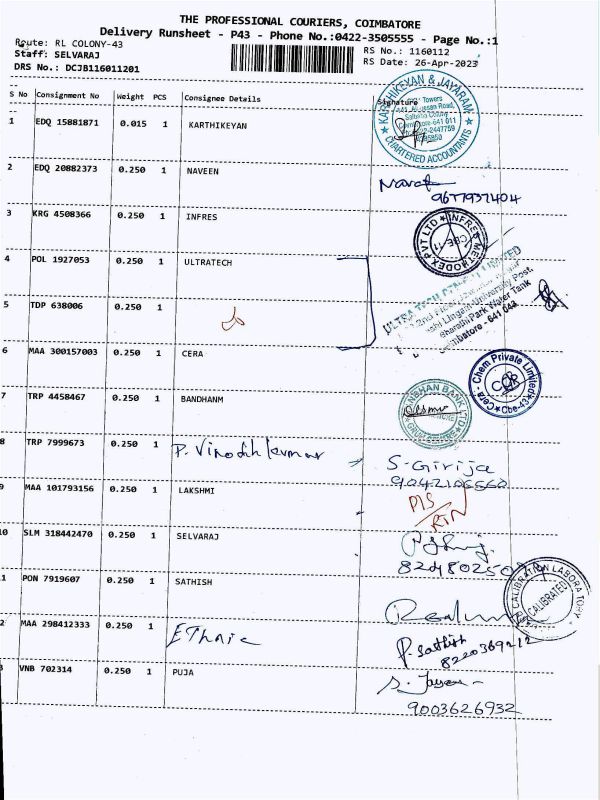 THE PROFESSIONAL COURIERS, COIMBATORE
Delivery Runsheet - P43 - Phone No.:0422-3505555 - Page No.:1
Route: RL COLONY-43
RS No.: 1160112
Staff: SELVARAJ
RS Date: 26-Apr-2023
DRS No.: DCJB116011201
S No Consignment No Weight PCS Consignee Details Signature
1 EDQ 15881871 0.015 1 KARTHIKEYAN
KARTHIKEYAN & JAYARAM
CHARTERED ACCOUNTANTS
2 EDQ 20882373 0.250 1 NAVEEN
9677937404
3 KRG 4508366 0.250 1 INFRES
INFRES METHODEX PVT LTD
CBE-11
4 POL 1927053 0.250 1 ULTRATECH
5 TDP 638006 0.250 1
SharathiPark Water Tank
Coimbatore - 641
6 MAA 300157003 0.250 1 CERA
Cera Chem Private Limited
Cbe-43
7 TRP 4458467 0.250 1 BANDHANM
BANK LTD
8 TRP 7999673 0.250 1 P. Vinodhkumar
S. Girija
9 MAA 101793156 0.250 1 LAKSHMI
DIS
RTN
10 SLM 318442470 0.250 1 SELVARAJ
11 PON 7919607 0.250 1 SATHISH
CALIBRATION LABORATORY
CALIBRATED
12 MAA 298412333 0.250 1 EThnic
P. Sathish
8220369212
VNB 702314 0.250 1 PUJA
9003626932